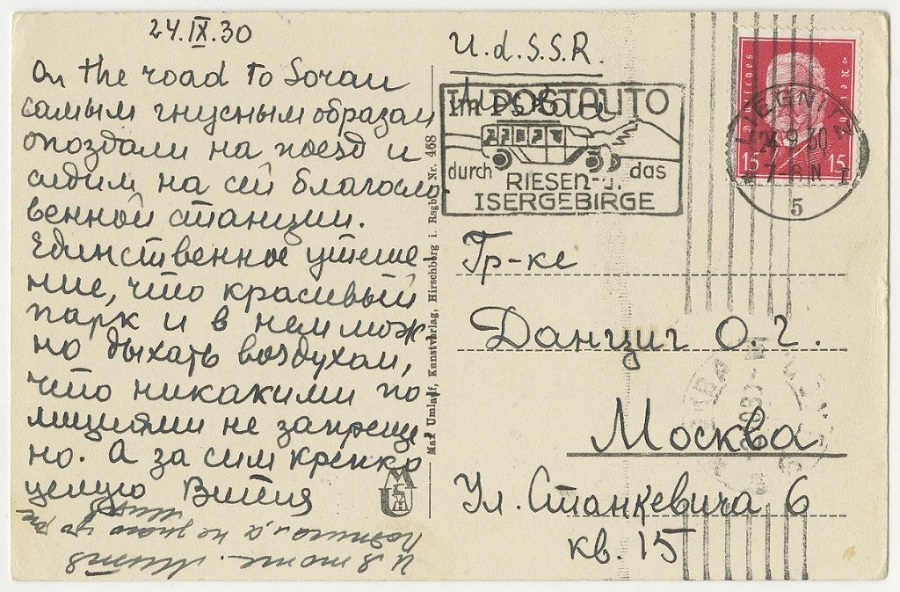 24.IX.30
On the road to Sorau
самым гнусным образом
опоздали на поезд и
сидим на сей благосло
венной станции.
Единственное утеше
ние, что красивый
парк и в нем мож
но дыхать воздухом,
что никакими по
лициями не запреще
но. А за сим крепко
целую Витя
И я тоже.
а не знаю
Max Umlauf, Kunstverlag, Hirschberg i. Rsgb. Nr. 468
U.d.S.S.R.
Im POSTAUTO
durch das
RIESEN- u.
ISERGEBIRGE
15 15
LIEGNITZ
24.9.30
5
Гр-ке
Данциг О.Г.
Москва
Ул. Станкевича 6
кв. 15